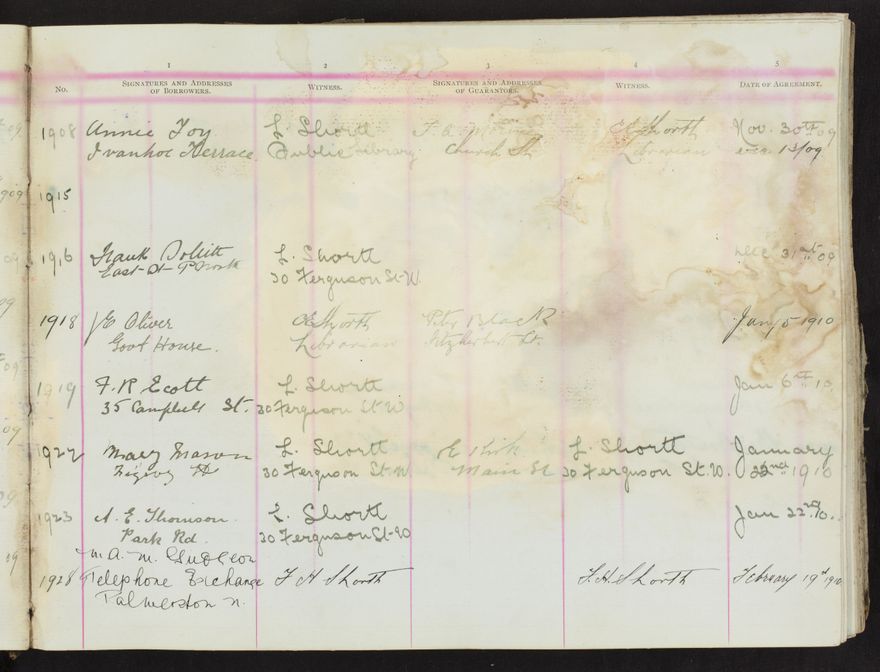 No.
1
SIGNATURES AND ADDRESSES
OF BORROWERS.
2
WITNESS.
3
SIGNATURES AND ADDRESSES
OF GUARANTORS.
4
WITNESS.
5
DATE OF AGREEMENT.
1908 Annie Joy L. Shortt Nov. 30th 09
Ivanhoe Terrace. Public Library Church St Librarian 13/09
1915
1916 Frank L. Shortt Dec 31st 09
East St P North 30 Ferguson St W.
1918 JE Oliver Shorth Peter Black Jany 5 1910
Govt House. Librarian Fitzherbert St.
1919 F. R Ecott L. Shortt Jan 6th 10
35 Campbell St. 30 Ferguson St W
1922 Mary Mason L. Shortt L. Shortt January
St 30 Ferguson St. W. Main St 30 Ferguson St. W. 22nd 1910
1923 A. E. Thomson. L. Shortt Jan 22nd 10.
Park Rd. 30 Ferguson St-W
M. Gudgeon
1928 Telephone Exchange F H Shorth F. H. Shorth February 19th 1910
Palmerston N.